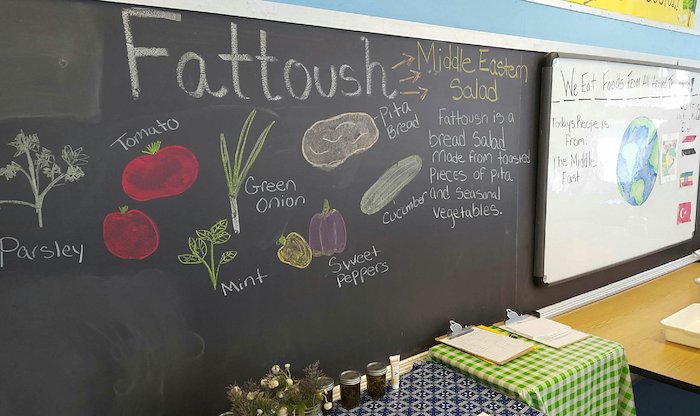 Fattoush
Middle Eastern
Salad
Tomato
Pita
Bread
Green
Onion
Cucumber
Parsley
Mint
Sweet
Peppers
Fattoush is a
bread salad
made from toasted
pieces of pita
and seasonal
vegetables.
We Eat Foods From All Around
Todays Recipe is
from:
The Middle
East